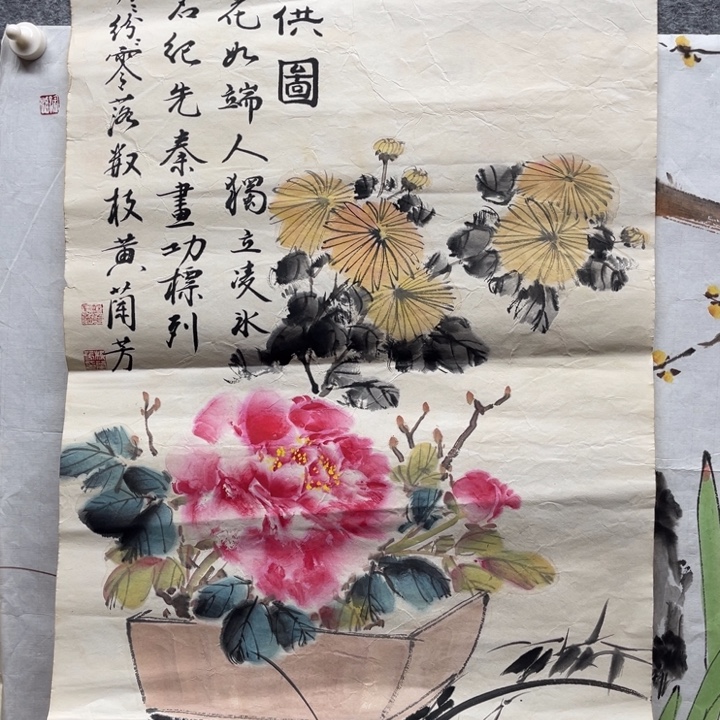 供圖
花如端人獨立凌氷
紀先秦畫功標列
紛零落数枝黄蘭芳